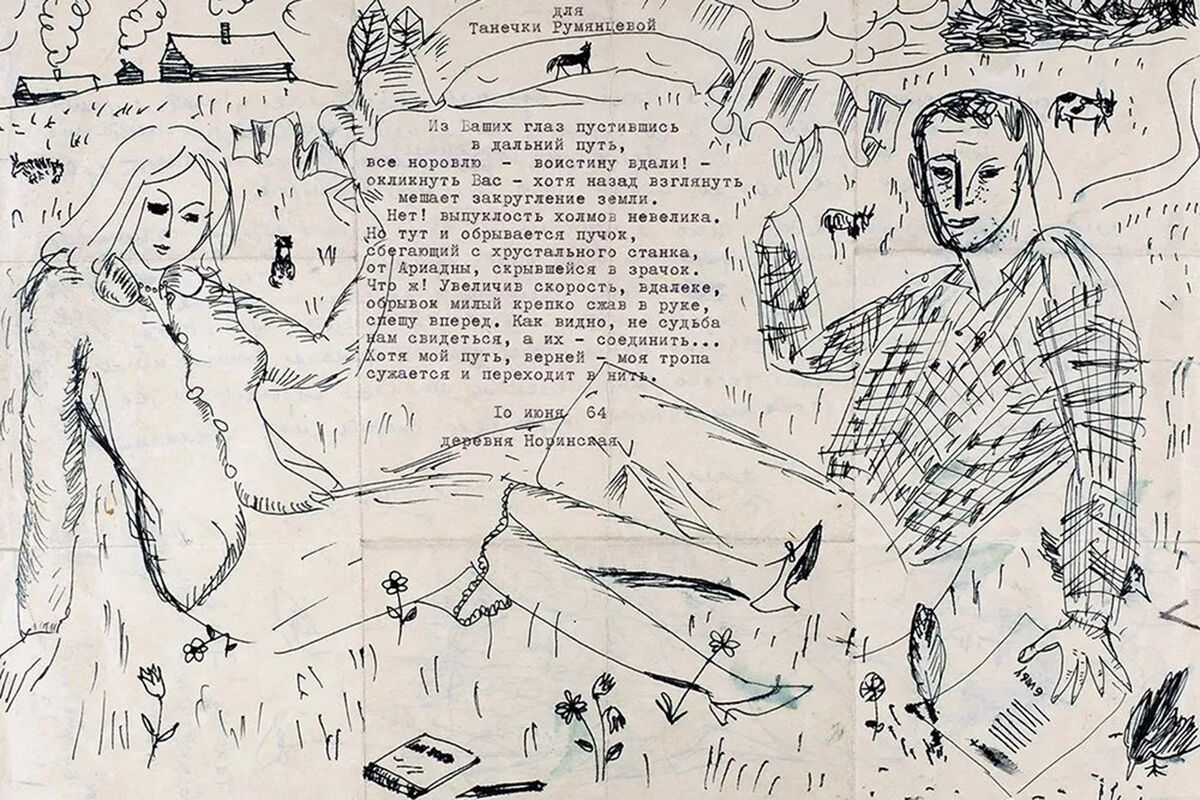 для
Танечки Румянцевой
Из Ваших глаз пустившись
в дальний путь,
все норовлю - воистину вдали! -
окликнуть Вас - хотя назад взглянуть
мешает закругление земли.
Нет! выпуклость холмов невелика.
Но тут и обрывается пучок,
сбегающий с хрустального станка,
от Ариадны, скрывшейся в зрачок.
Что ж! Увеличив скорость, вдалеке,
обрывок милый крепко сжав в руке,
спешу вперед. Как видно, не судьба
нам свидеться, а их - соединить...
Хотя мой путь, верней - моя тропа
сужается и переходит в нить.
10 июня 64
деревня Норинская